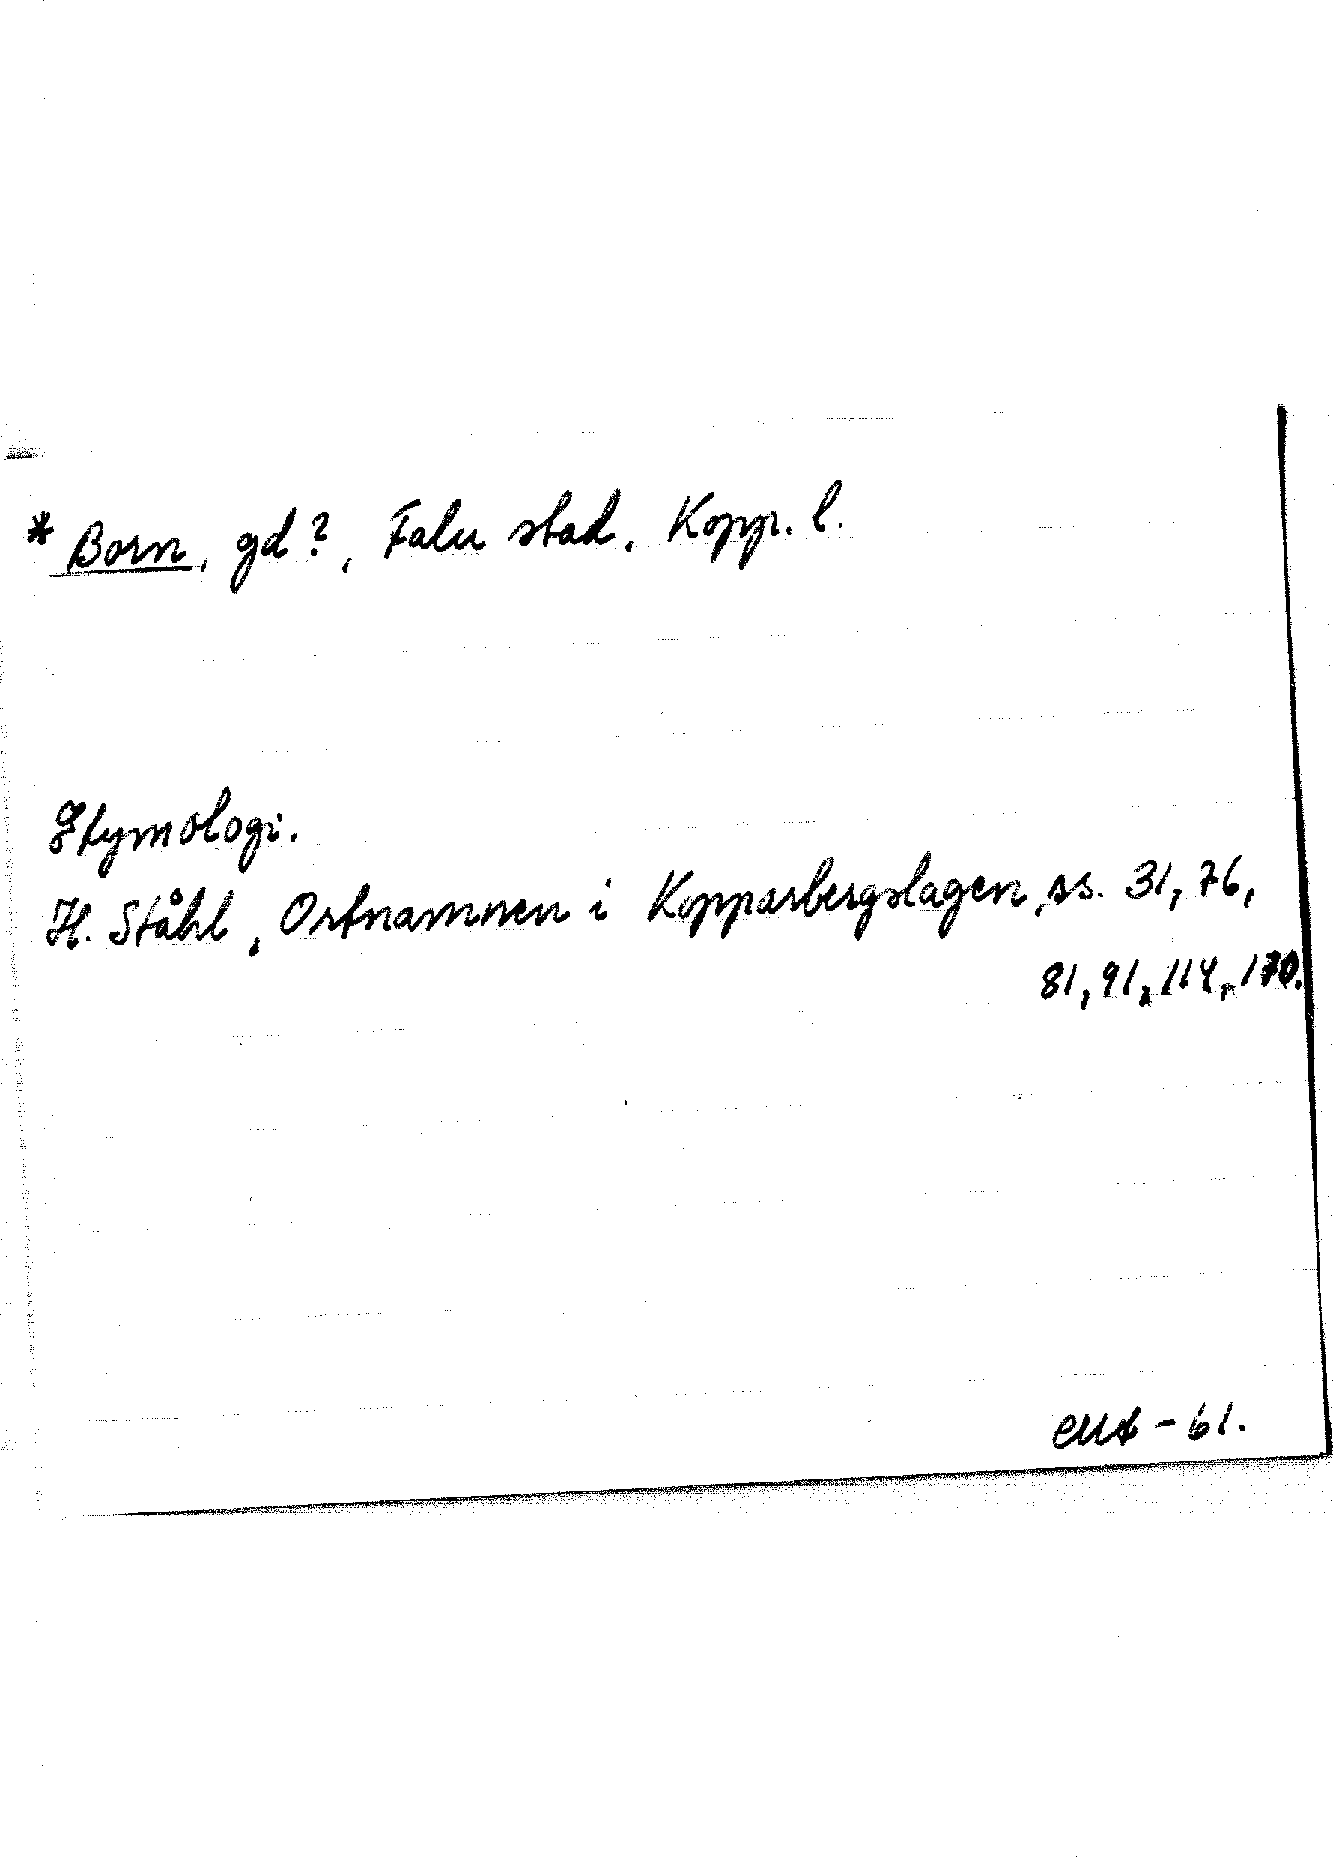 * Born, gd?, Falu stad, Kopp. l.
Etymologi.
H. Ståhl, Ortnamnen i Kopparbergslagen, ss. 31, 76,
81, 91, 114, 170.
-61.